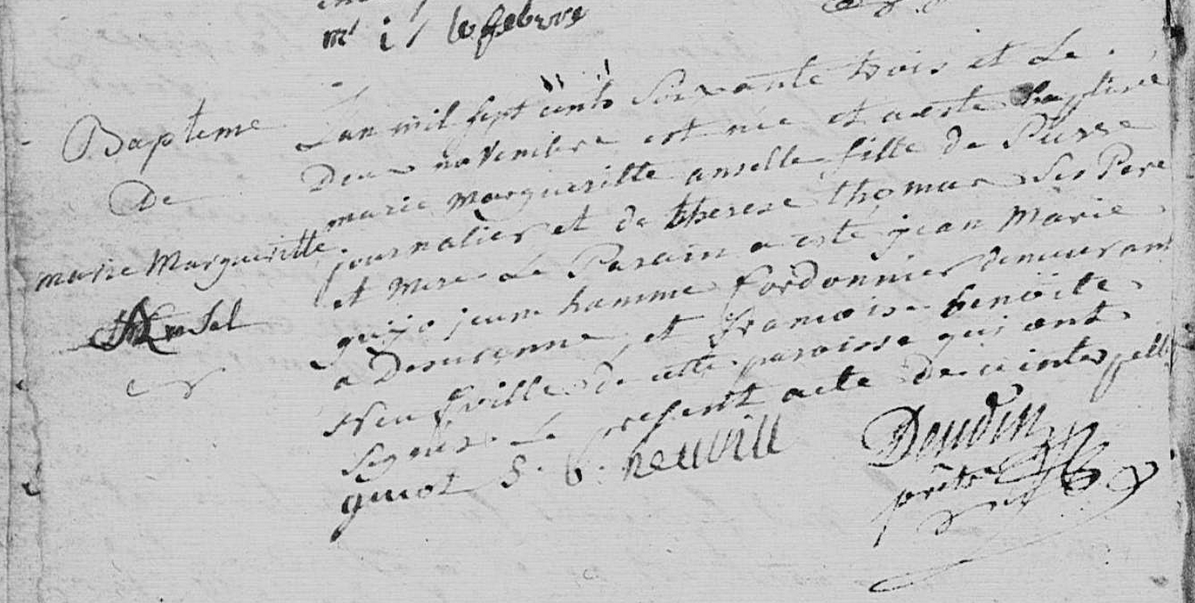 mr i f lefebvre
Bapteme
De
marie Margueritte
Ansel
Lan mil sept cents soixante trois et Le
Deux novembre est née et a esté baptisée
marie margueritte anselle fille de Pierre
journalier et de therese thomas ses Pere
et mere Le Parain a esté jean Marie
guijo jeune homme Cordonnier demeurant
a Deucenne et francoise benoite
Neufville de cette paroisse qui ont
signés Le present acte de ce interpellé
guiot f. b. neuvill
Doudin
prêtre